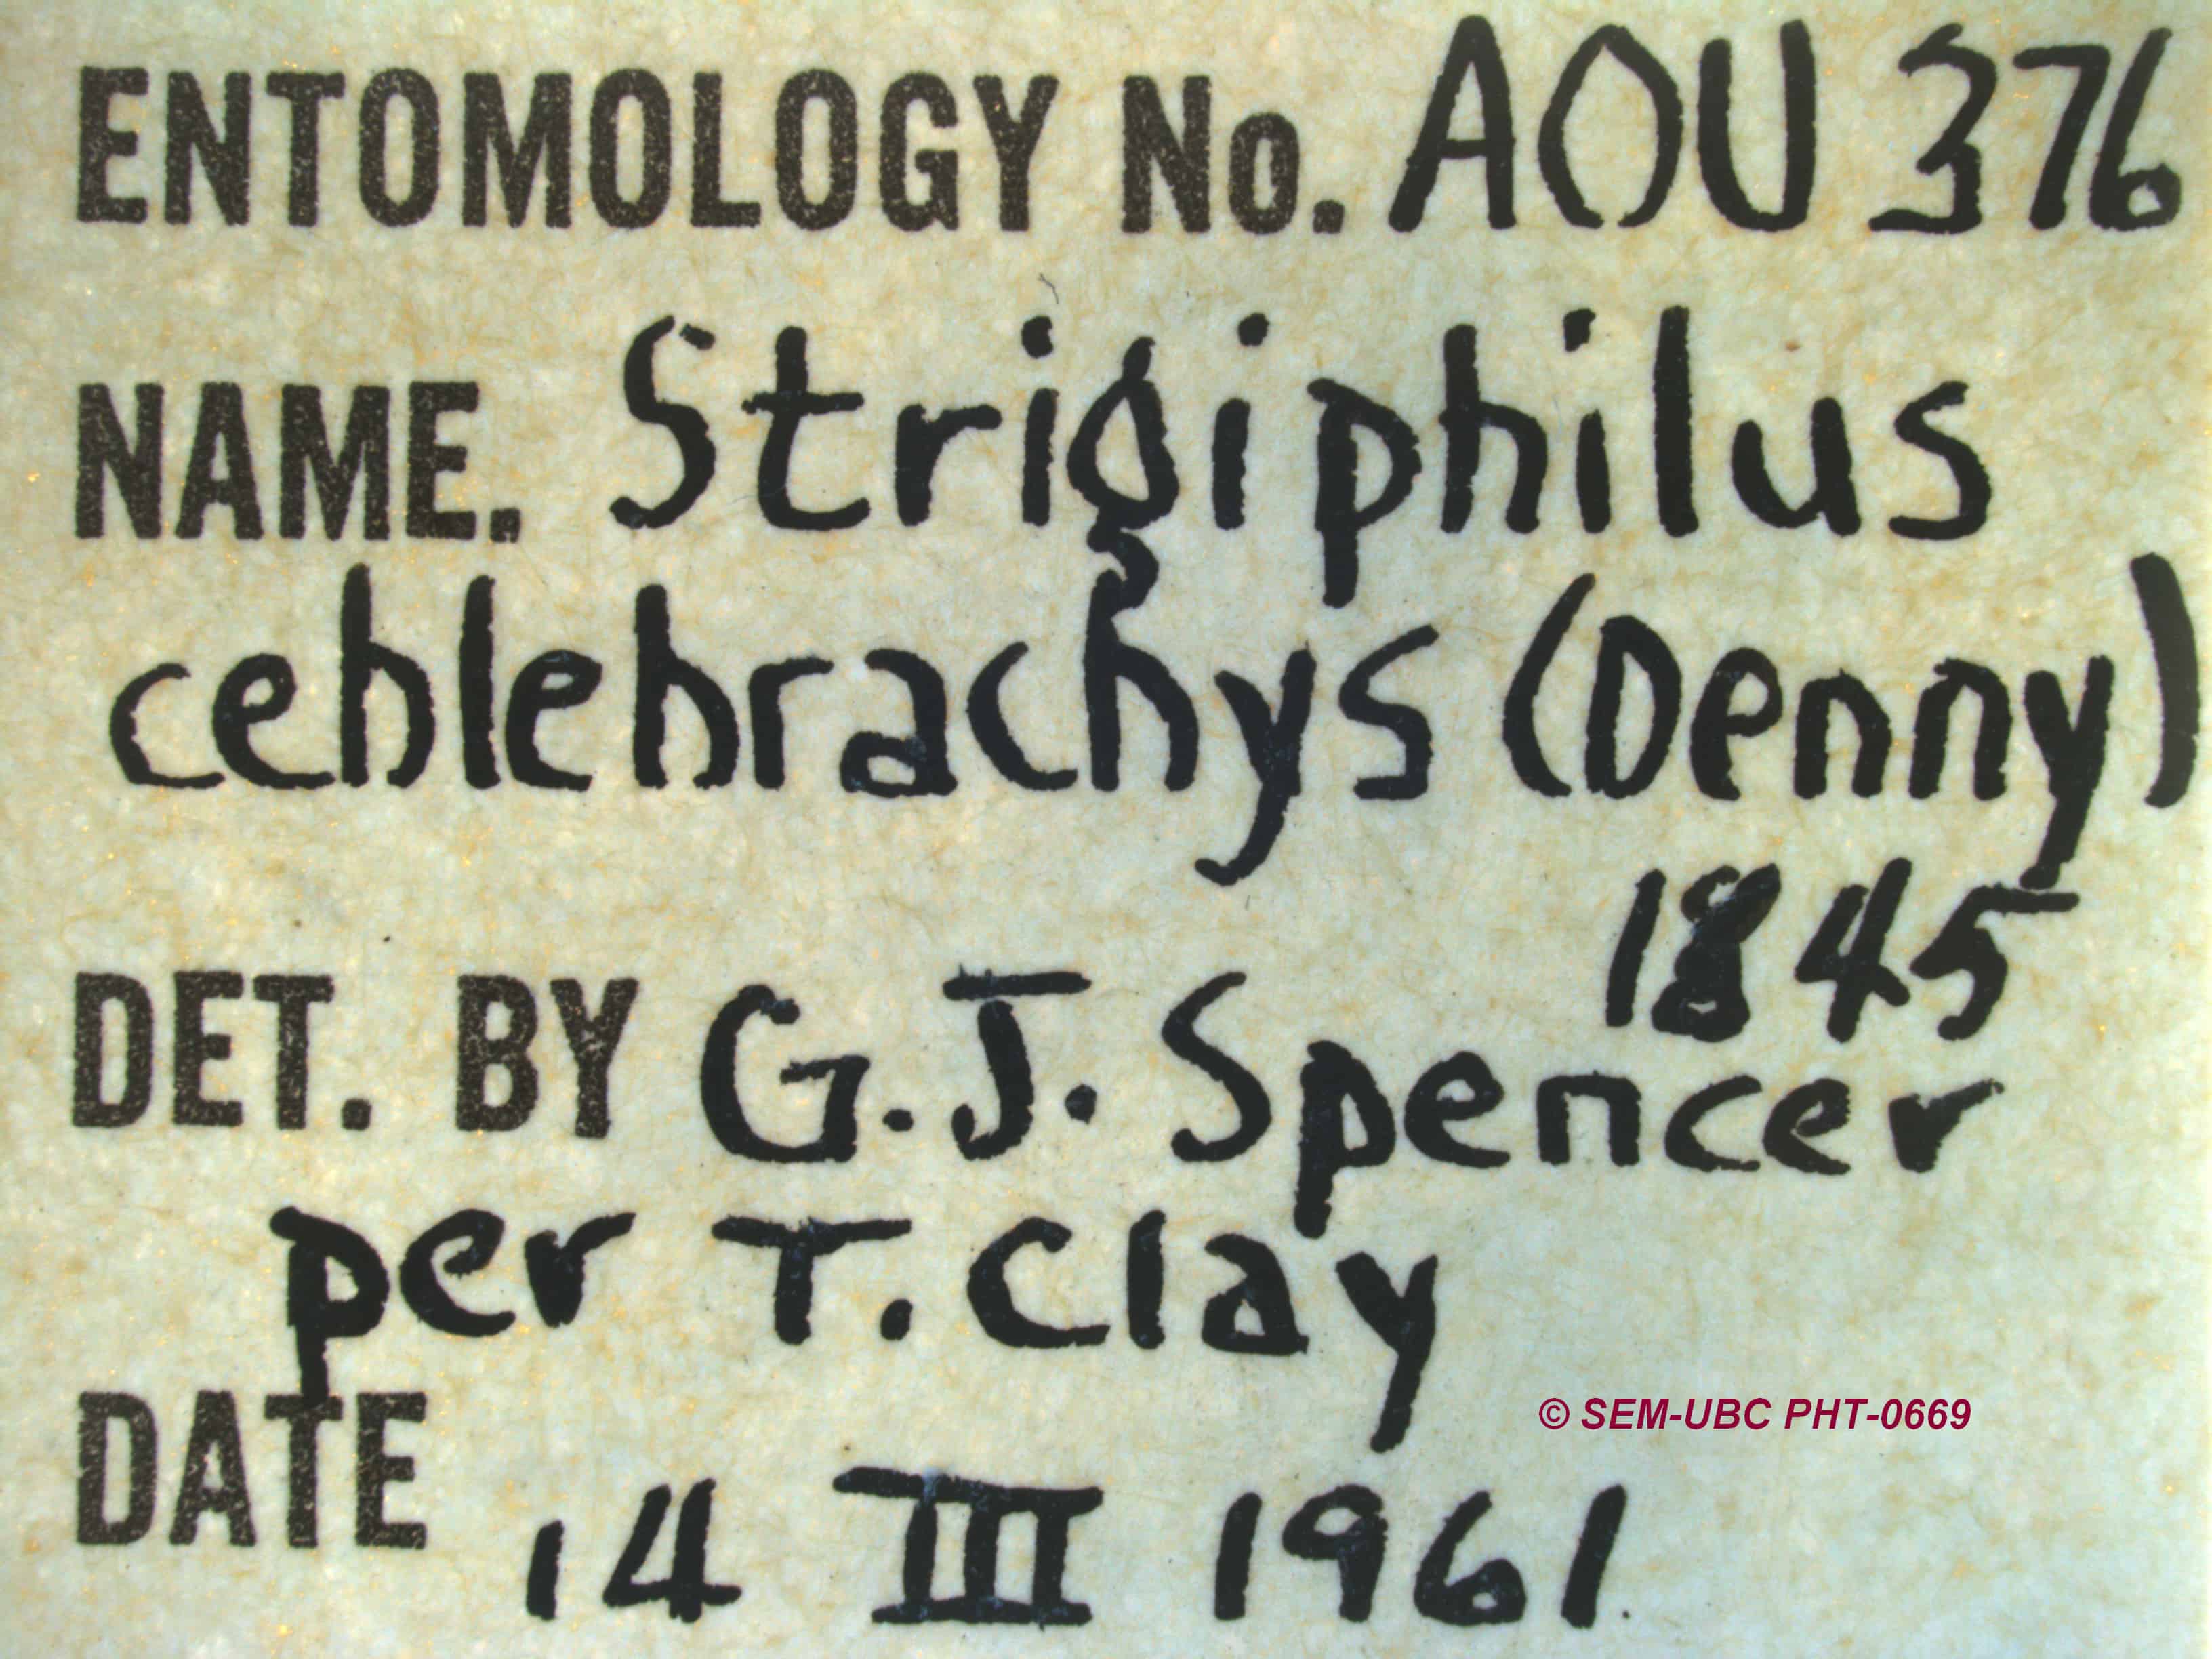 ENTOMOLOGY No. AOU 376
NAME. Strigiphilus
ceblebrachys (Denny)
1845
DET. BY G. J. Spencer
per T. Clay
© SEM-UBC PHT-0669
DATE 14 III 1961